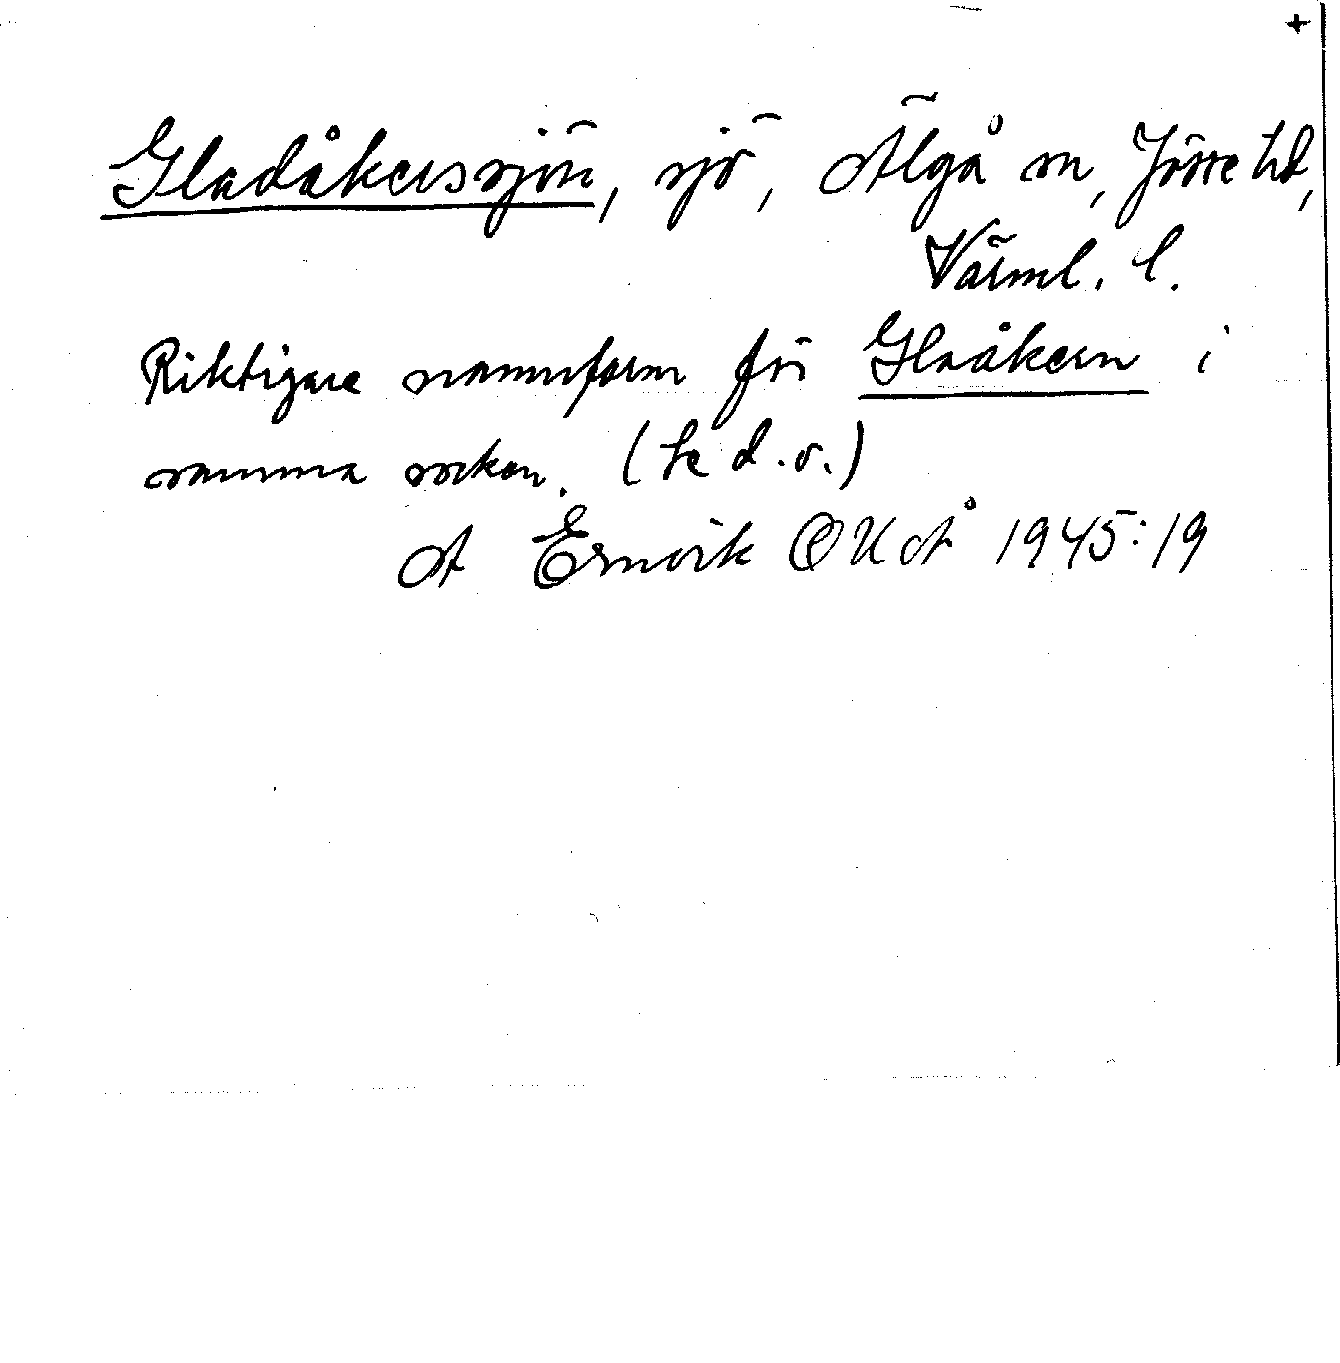 +
Gladåkerssjön, sjö, Älgå sn, Jösse hd,
Värml. l.
Riktigare namnform för Glaåkern i
samma socken. (Se d.o.)
A Ernvik OUÅ 1945:19